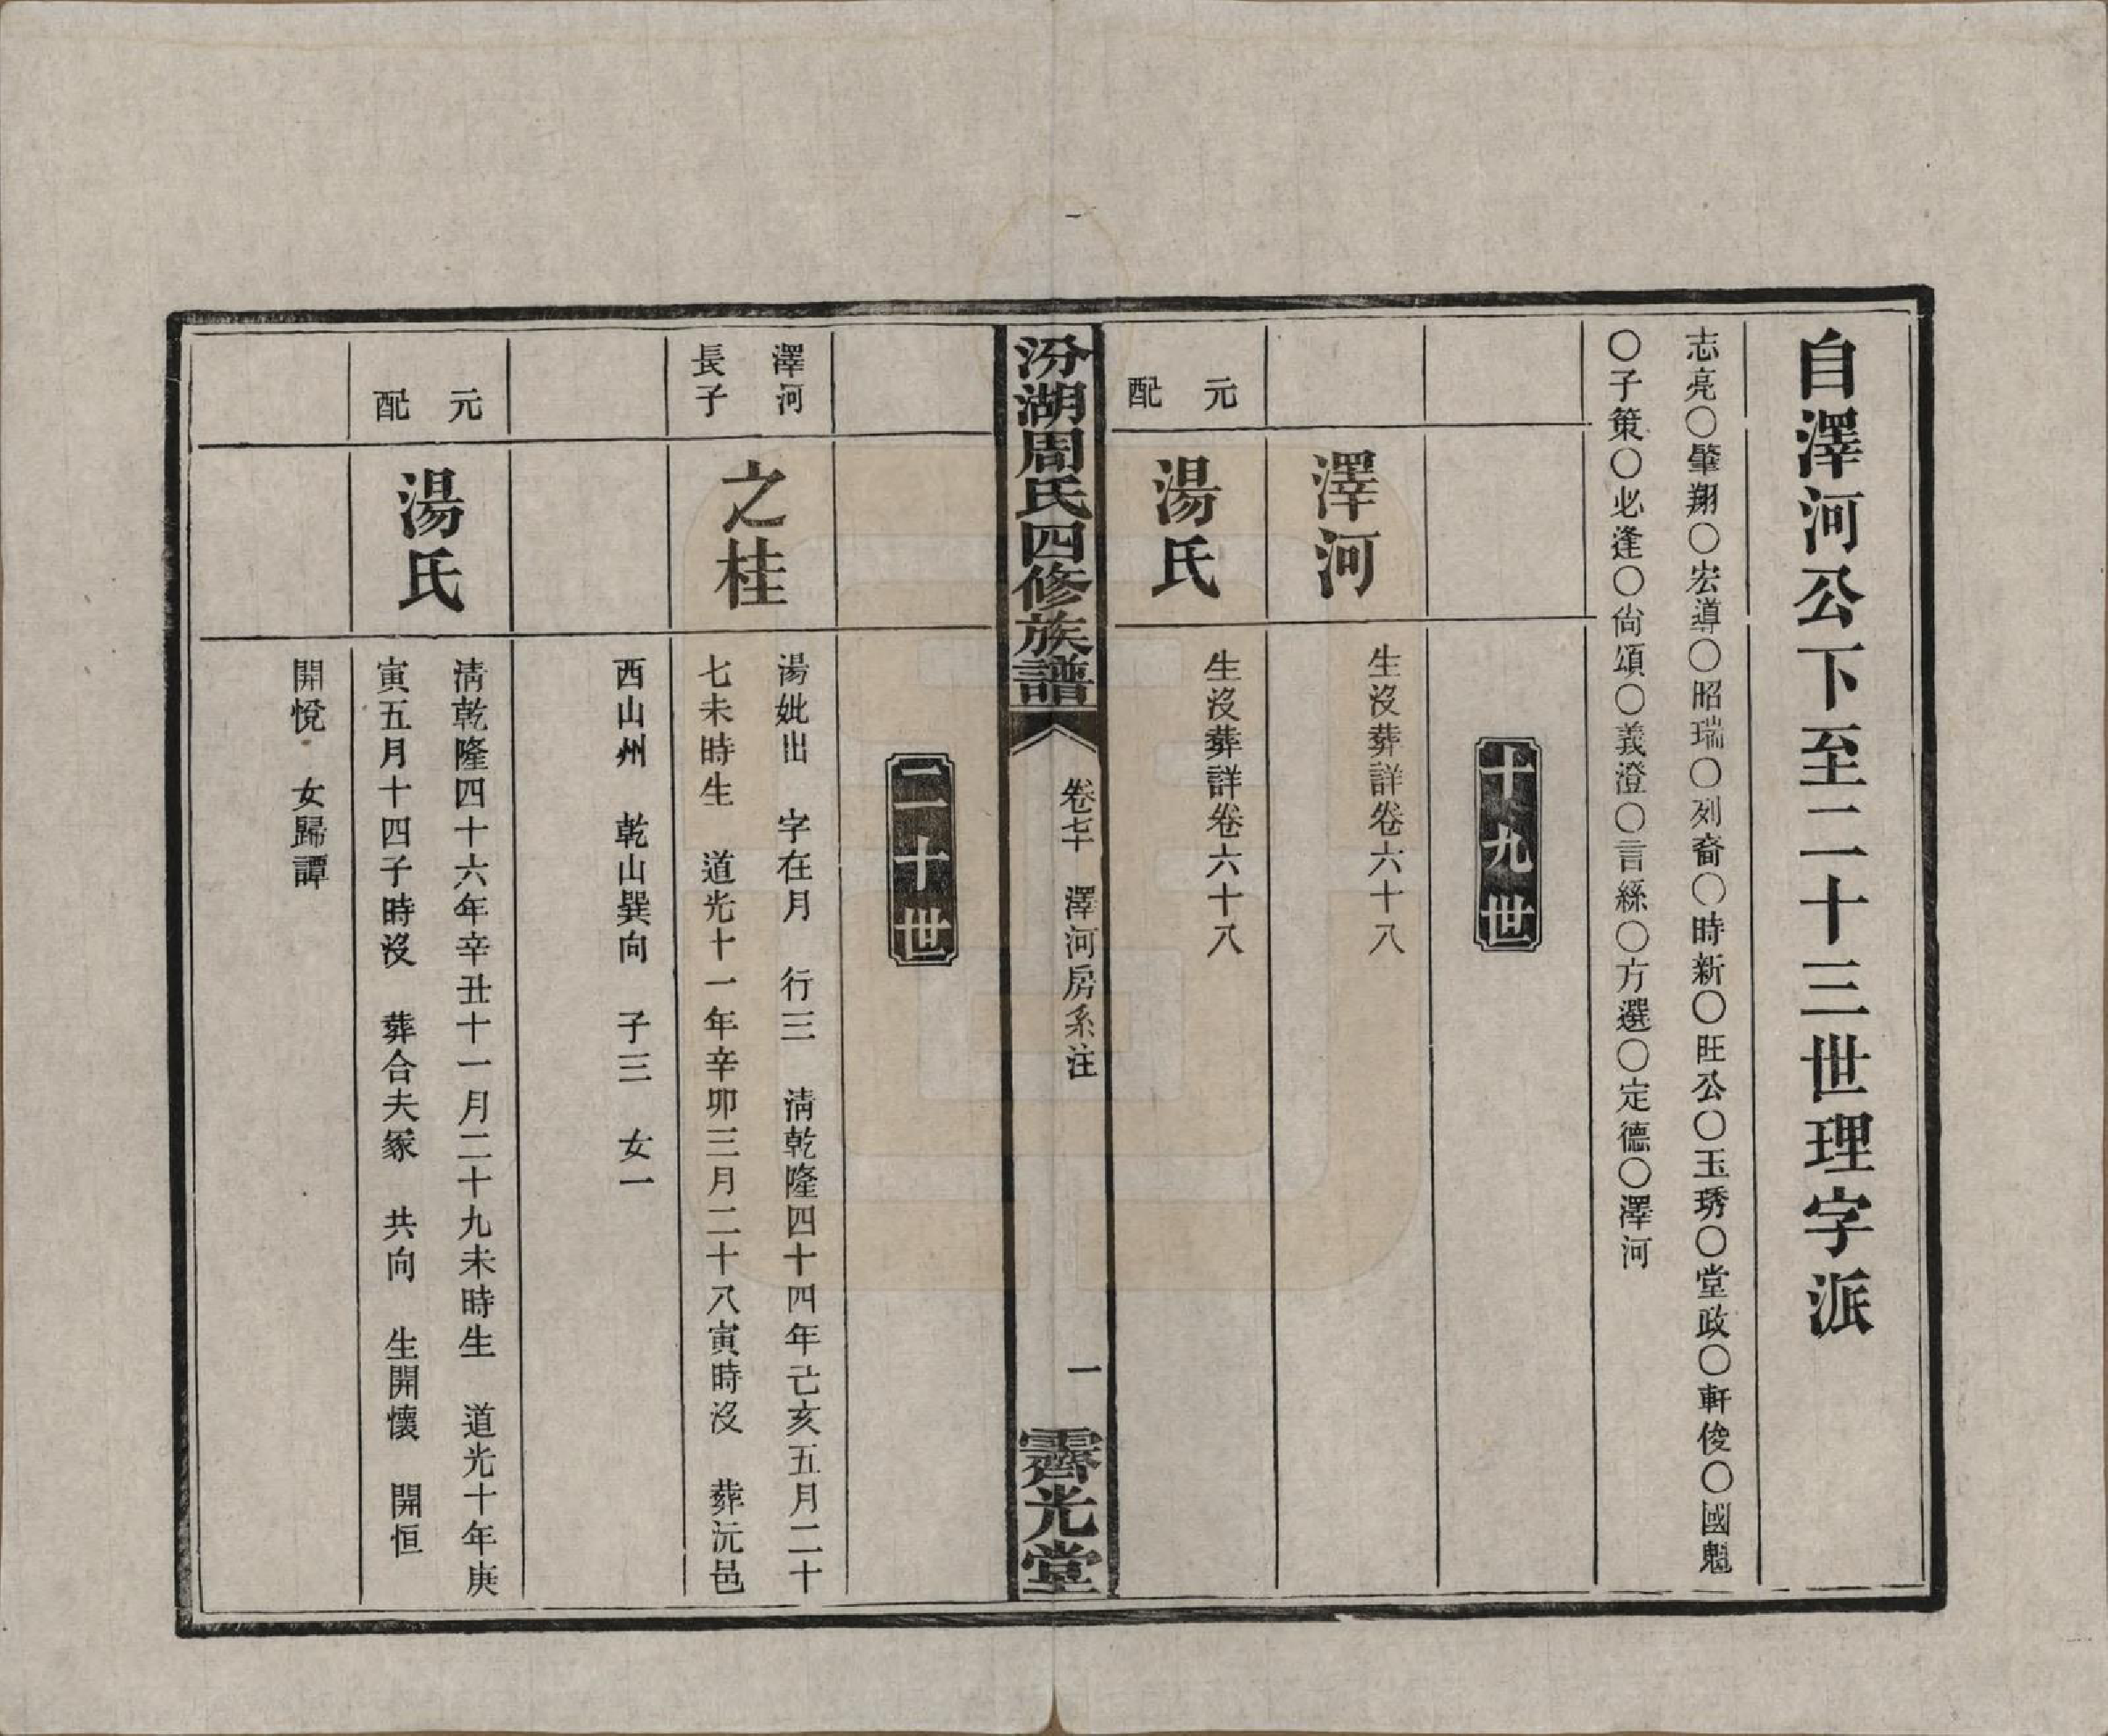 自澤河公下至二十三世理字派
志亮○肇翔○宏導○昭瑞○列裔○時新○旺公○玉琇○堂政○軒俊○國魁
○子策○必逢○尙頌○義澄○言綵○方選○定德○澤河
十九世
澤河
生沒葬詳卷六十八
元配
湯氏
生沒葬詳卷六十八
汾湖周氏四修族譜
卷七十 澤河房系注
一
霽光堂
二十世
澤河
長子
之桂
湯妣出 字在月 行三 淸乾隆四十四年己亥五月二十
七未時生 道光十一年辛卯三月二十八寅時沒 葬沅邑
西山州 乾山巽向 子三 女一
元配
湯氏
淸乾隆四十六年辛丑十一月二十九未時生 道光十年庚
寅五月十四子時沒 葬合夫冢 共向 生開懷 開恒
開悅 女歸譚